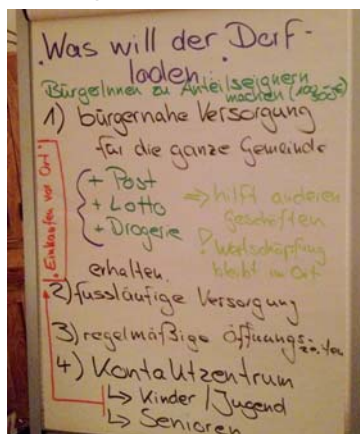 Was will der Dorf-
laden
BürgerInnen zu Anteilseignern
machen
1) bürgernahe Versorgung
für die ganze Gemeinde
+ Post
+ Lotto
+ Drogerie
erhalten.
=> hilft anderen
Geschäften
! Wertschöpfung
bleibt im Ort
Einkaufen vor Ort
2) fussläufige Versorgung
3) regelmäßige Öffnungs-
zeiten
4) Kontaktzentrum
↳ Kinder / Jugend
↳ Senioren